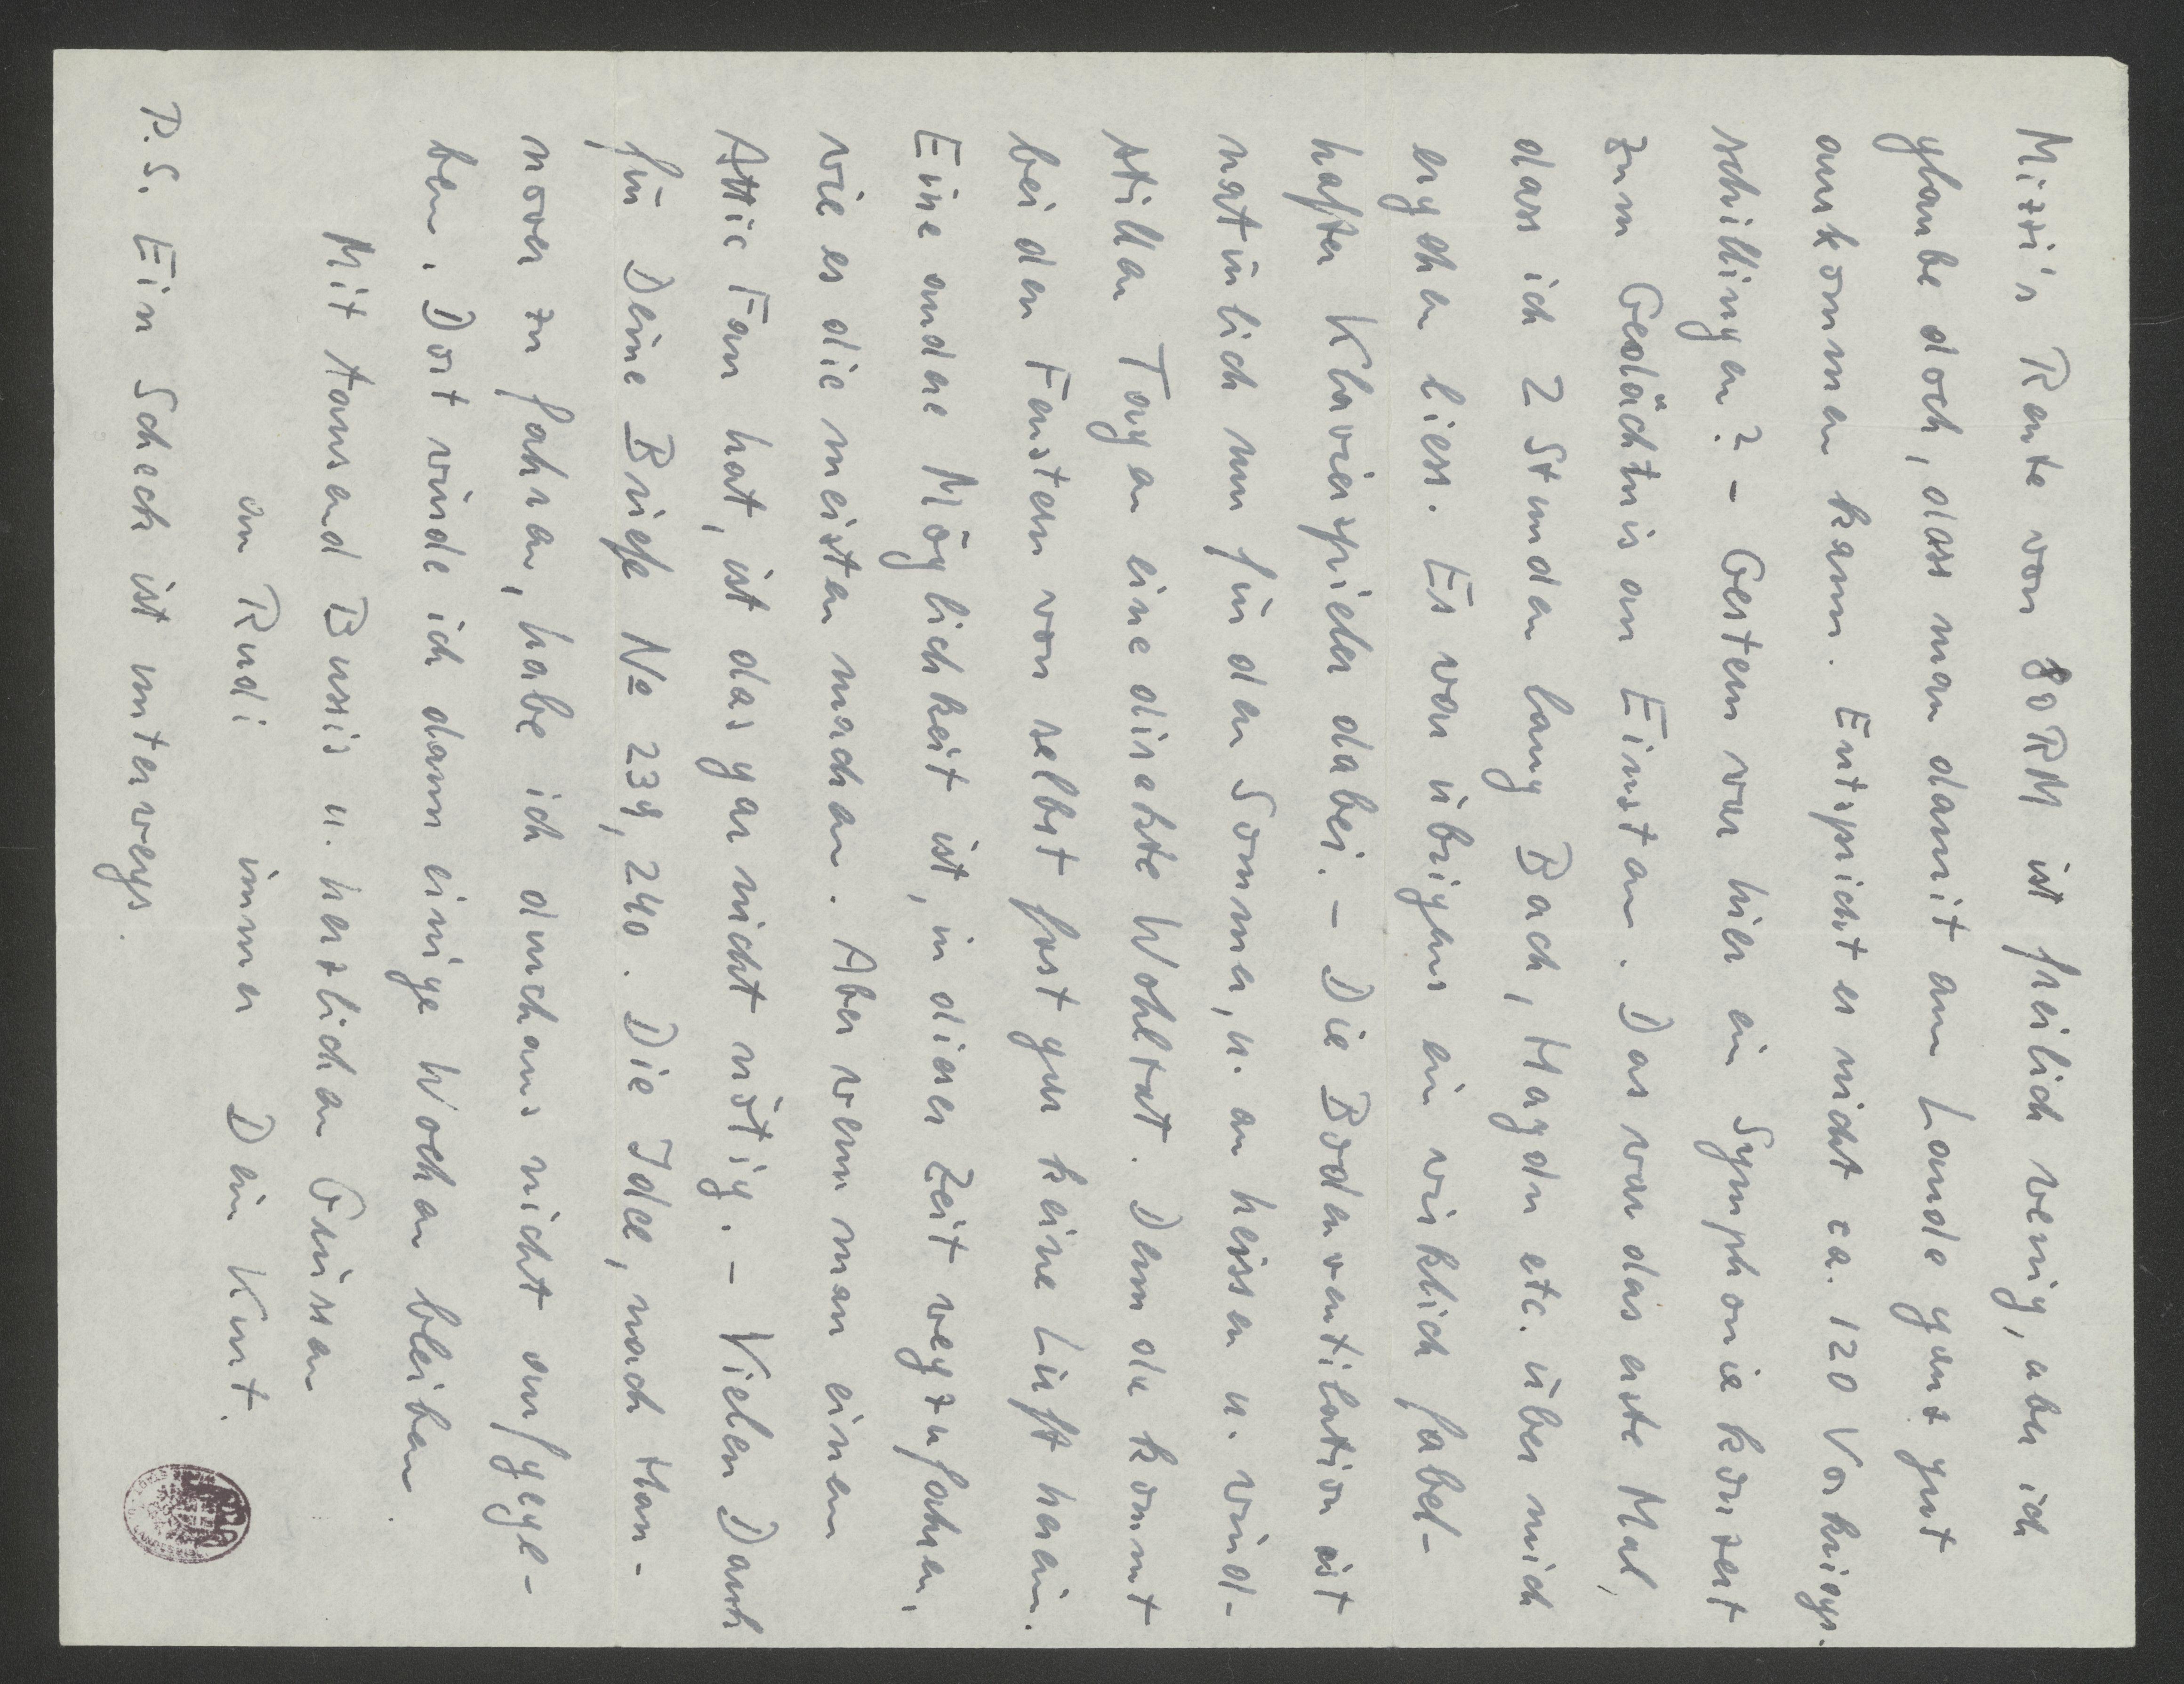 Mizzi's Rente von 80 RM ist freilich wenig, aber ich
glaube doch, dass man damit am Lande ganz gut
auskommen kann. Entspricht es nicht ca. 120 Vorkriegs-
schillingen? – Gestern war hier ein Symphoniekonzert
zum Gedächtnis an Einstein. Das war das erste Mal,
dass ich 2 Stunden lang Bach, Haydn etc. über mich
ergehen liess. Es war übrigens ein wirklich fabel-
hafter Klavierspieler dabei. – Die Bodenventilation ist
natürlich nur für den Sommer, u. an heissen u. wind-
stillen Tagen eine direkte Wohltat. Denn da kommt
bei den Fenstern von selbst fast gar keine Luft herein.
Eine andere Möglichkeit ist, in dieser Zeit wegzufahren,
wie es die meisten machen. Aber wenn man einen
Attic Fan hat, ist das gar nicht nötig. – Vielen Dank
für Deine Briefe No 239, 240. Die Idee, nach Han-
nover zu fahren, habe ich durchaus nicht aufgege-
ben. Dort würde ich dann einige Wochen bleiben.
Mit tausend Bussis u. herzlichen Grüssen
an Rudi immer Dein Kurt.
P.S. Ein Scheck ist unterwegs.